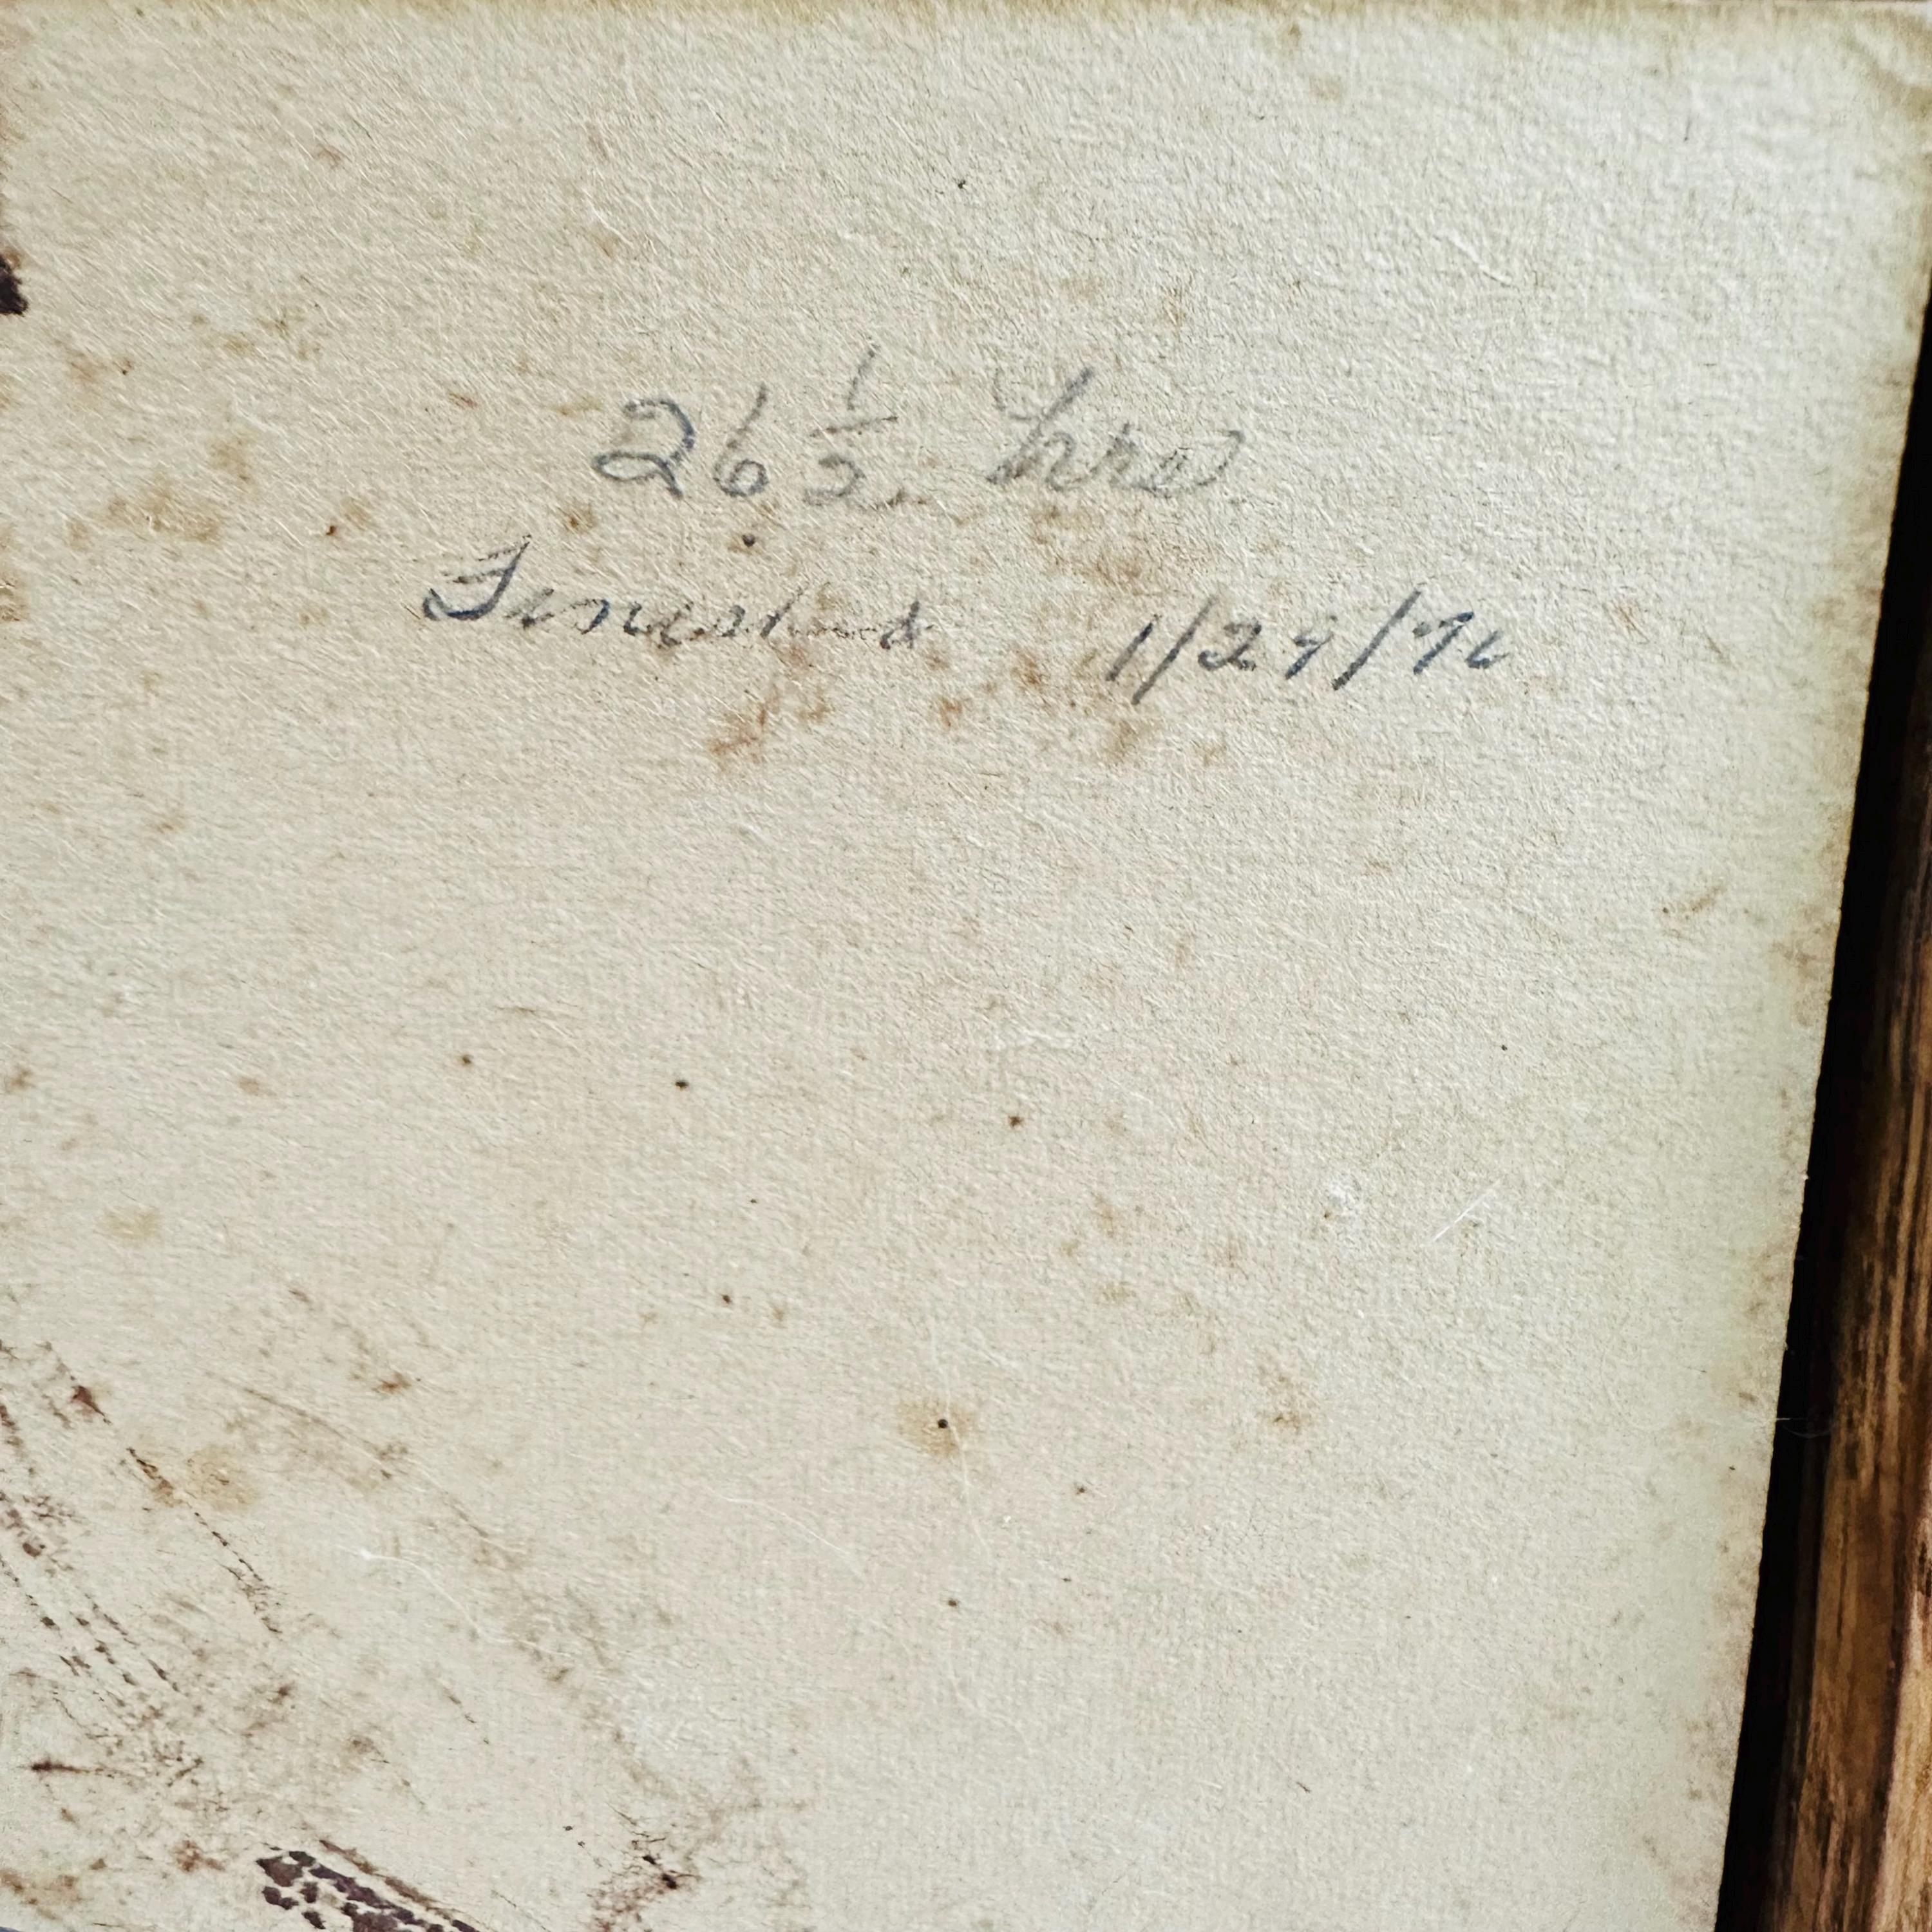 26 1/2 hrs
Finished 1/29/76